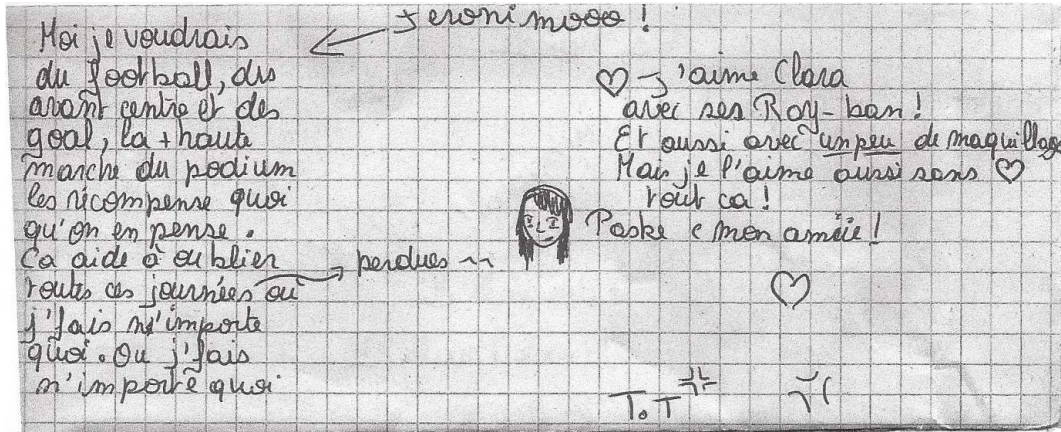 Jeronimooo !
Moi je voudrais
du football, des
avant centre et des
goal, la + haute
marche du podium
les récompense quoi
qu'on en pense .
Ca aide à oublier
toutes ces journées où
perdues ~~
j'fais n'importe
quoi. Ou j'fais
n'importe quoi
♡ J'aime Clara
avec ses Ray-ban !
Et aussi avec un peu de maquillage
Mais je l'aime aussi sans ♡
tout ca !
Paske c mon amiie !
T.T